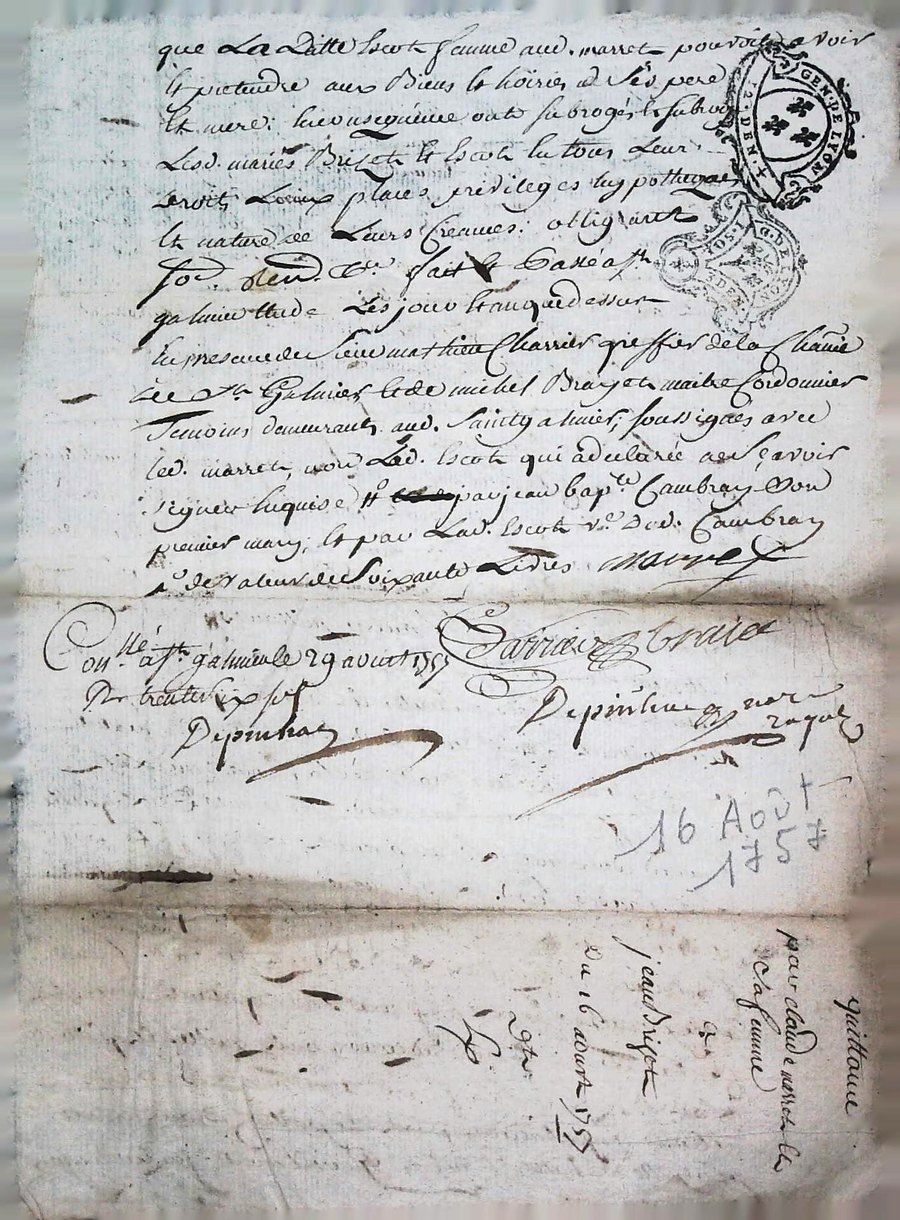 que La Ditte Escot femme aud. marret pouvoit avoir
Et pretendre aux Biens Et hoiries de Ses pere
Et mere; En consequence ont subrogés Et subrogent
Lesd. mariés Brizet Et Escot En tous Leur
Droits places privileges hypotteques
Et nature de Leurs Creances. obligeant
fait Et Passé a St
galmier Etude Les jour Et an que dessus
En presence de Sieur mathieu Charrier greffier de la
de St Galmier Et de michel Brazet maitre Cordonnier
Temoins demeurants aud. Saint galmier, soussignés avec
led. marret, non Lad. Escot qui a declaré ne Sçavoir
signer Enquise par jean bapte Cambray Son
premier mary, Et par Lad. Escot ve dud. Cambray
de valeur de Soixante Livres marret
Charrier Brazet
Conllé a St galmier le 29 aoust 1757
Rx trente six sols
Depinhac
Depinhac nore
royal
16 Août
1757
quittance
par claude marret Et
Sa femme
a
jean Brizet
Du 16 aoust 1757
GEN. DE LYON
2. DEN.